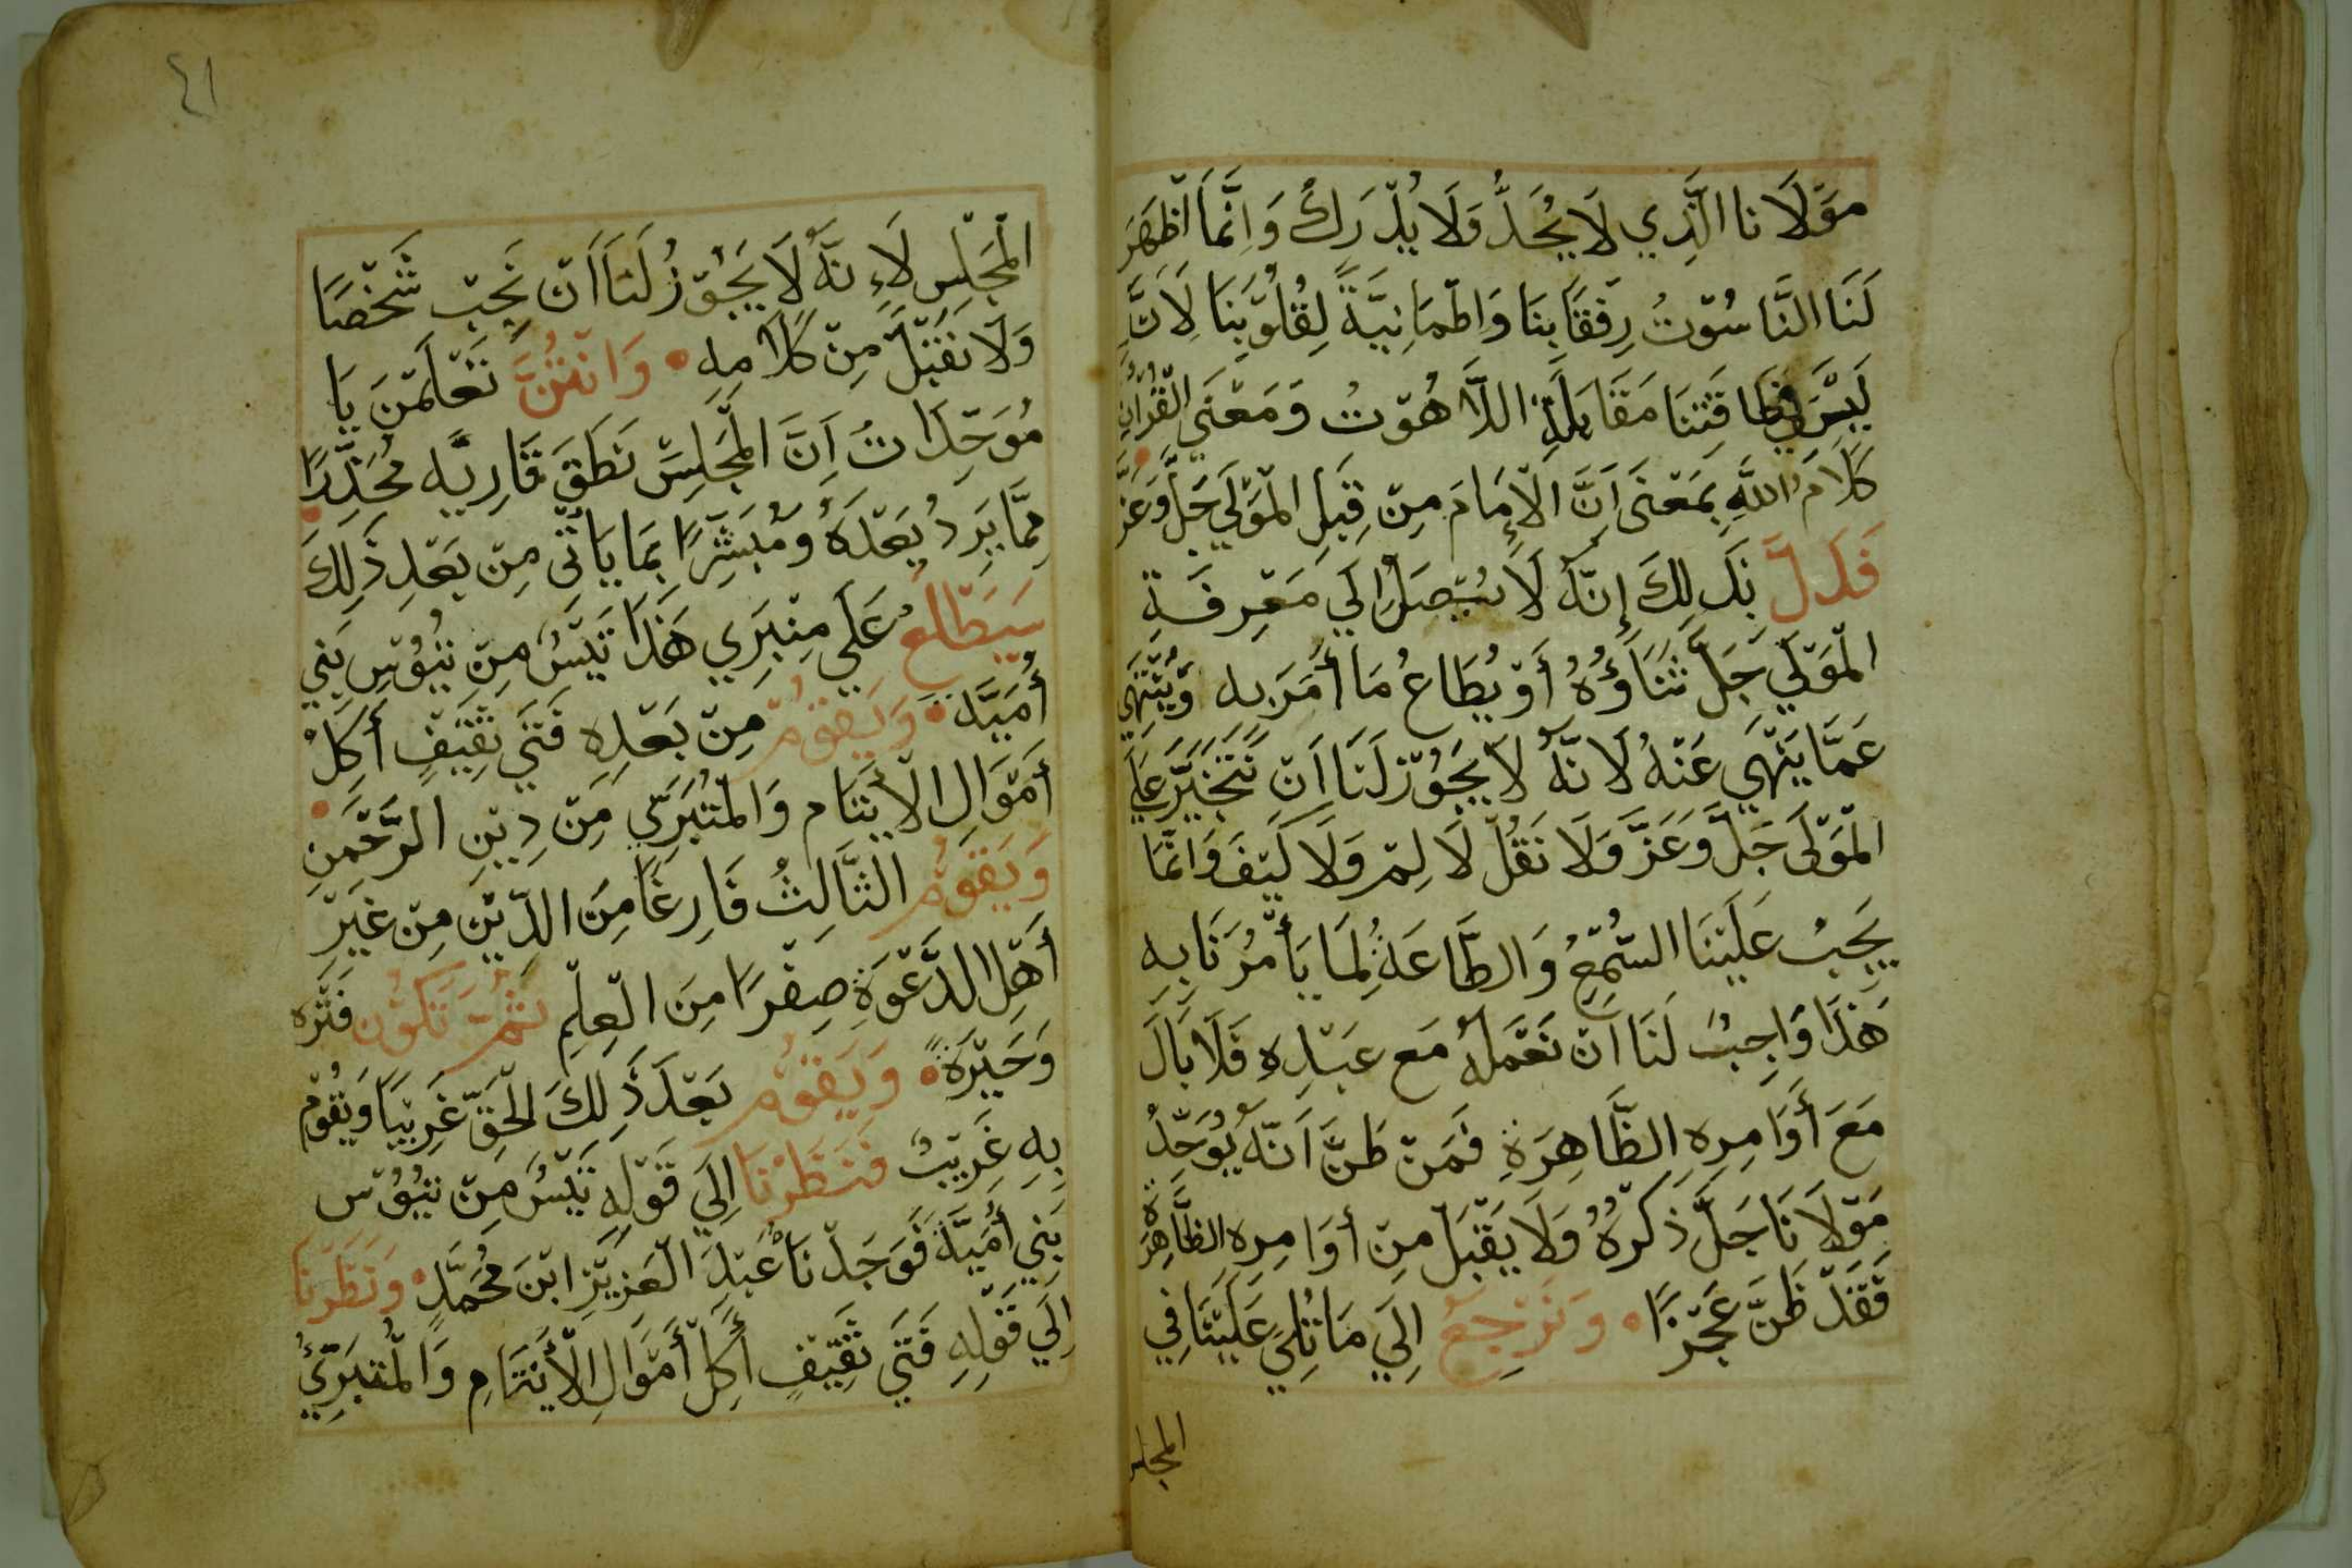 مَوْلَانا الَّذِي لَا يُحَدُّ وَلَا يُدْرَكُ وَاِنَّمَا اَظهَرَ
لَنَا النَّاسُوْتُ رِفْقًا بِنَا وَاطْمَانِيَّةً لِقُلُوْبِنَا لِاَنَّ
لَيْسَ فِي طَاقَتِنَا مَقَابَلَةِ اللَّاهُوْتُ وَمَعْنَي الْقُرْاٰنِ
كَلَامُ اللَّهِ بِمَعْنَى اَنَّ الْاِمَامَ مِنْ قِبَلِ الْمَوْلَي جَلَّ وَعَزَّ
فَدَلَّ بِذَلِكَ إِنَّهُ لَا يُتَّصَلُ اِلَي مَعْرِفَةِ
الْمَوْلَي جَلَّ ثَنَاؤُهُ أَوْ يُطَاعُ مَا أَمَرَ بِهِ وَيُنْتَهَي
عَمَّا يَنْهَي عَنْهُ لَانَّهُ لَا يَجُوْزُ لَنَا اَنْ نَتَخَيَّرَ عَلَي
الْمَوْلَى جَلَّ وَعَزَّ وَلَا نَقُلْ لَا لِمْ وَلَا كَيْفَ وَانَّمَا
يَجِبُ عَلَيْنَا السَّمْعُ وَالطَّاعَةُ لِمَا يَأْمُرُنَا بِهِ
هَذَا وَاجِبٌ لَنَا اَنْ نَعْمَلَهُ مَع عَبْدِهِ فَلَا بَالَ
مَعَ أَوَامِرِهِ الظَّاهِرَةِ فَمَنْ ظَنَّ اَنَّهُ يُوَحِّدُ
مَوْلَانَا جَلَّ ذِكْرُهُ وَلَا يَقْبَلْ مِنْ أوَامِرِهِ الظَّاهِرَةِ
فَقَدْ ظَنَّ عَجْزًا • وَنَرْجِعُ اِلَي مَا تُلِيَ عَلَيْنَا فِي
المجلس
٤١
الْمَجْلِسِ لَاِنَّهُ لَا يَجُوْزُ لَنَا اَنْ نُحِبّ شَخْصًا
وَلَا نَقْبَلْ مِنْ كَلَامِهِ • وَانْتُنَّ تَعْلَمْنَ يَا
مُوَحِّدَاتُ اَنَّ الْمَجْلِسَ نَطَقَ قَارِيْهِ مُحَذِّرًا •
مِمَّا يَرِدُ بَعْدَهُ وَمُبَشِّرًا بِمَا يَاتَي مِنْ بَعْدِ ذَلِكَ
سَيَطْلَعُ عَلَي مِنْبَرِي هَذَا تَيْسٌ مِنْ تُيُوْسِ بَنِي
أُمَيَّهْ • وَيَقُوْمُ مِنْ بَعْدِهِ فَتَي ثَقِيْفٍ أَكِلْ
أَمْوَالِ الْأَيْتَامِ وَالْمُتَبَرِّي مِنْ دِيْنِ الرَّحْمَنِ •
وَيَقُوْمُ الثَّالِثُ فَارِغًا مِنَ الدِّيْنِ مِنْ غَيْرِ
أَهْلِ الدَّعْوَةِ صِفْرًا مِنَ الْعِلْمِ ثُمَّ تَكُوْن فَتْرَه
وَحَيْرَةً • وَيَقُوْمُ بَعْدَ ذَلِكَ الْحَقِّ غَرِيْبًا وَيَقُوْمُ
بِهِ غَرِيْبٌ فَنَظَرْنَا اِلَي قَوْلِهِ تَيْسٌ مِنْ تُيُوْس
بَنِي أُمَيَّهْ فَوَجَدْنَا عَبْدَ الْعَزِيْزِ ابْنَ مُحَمَّدٍ • وَنَظَرْنَا
اِلَي قَوْلِهِ فَتَي ثَقِيْفٍ أَكِلْ أَمْوَالِ الْأَيْتَامِ وَالْمُتَبَرِّيُّ